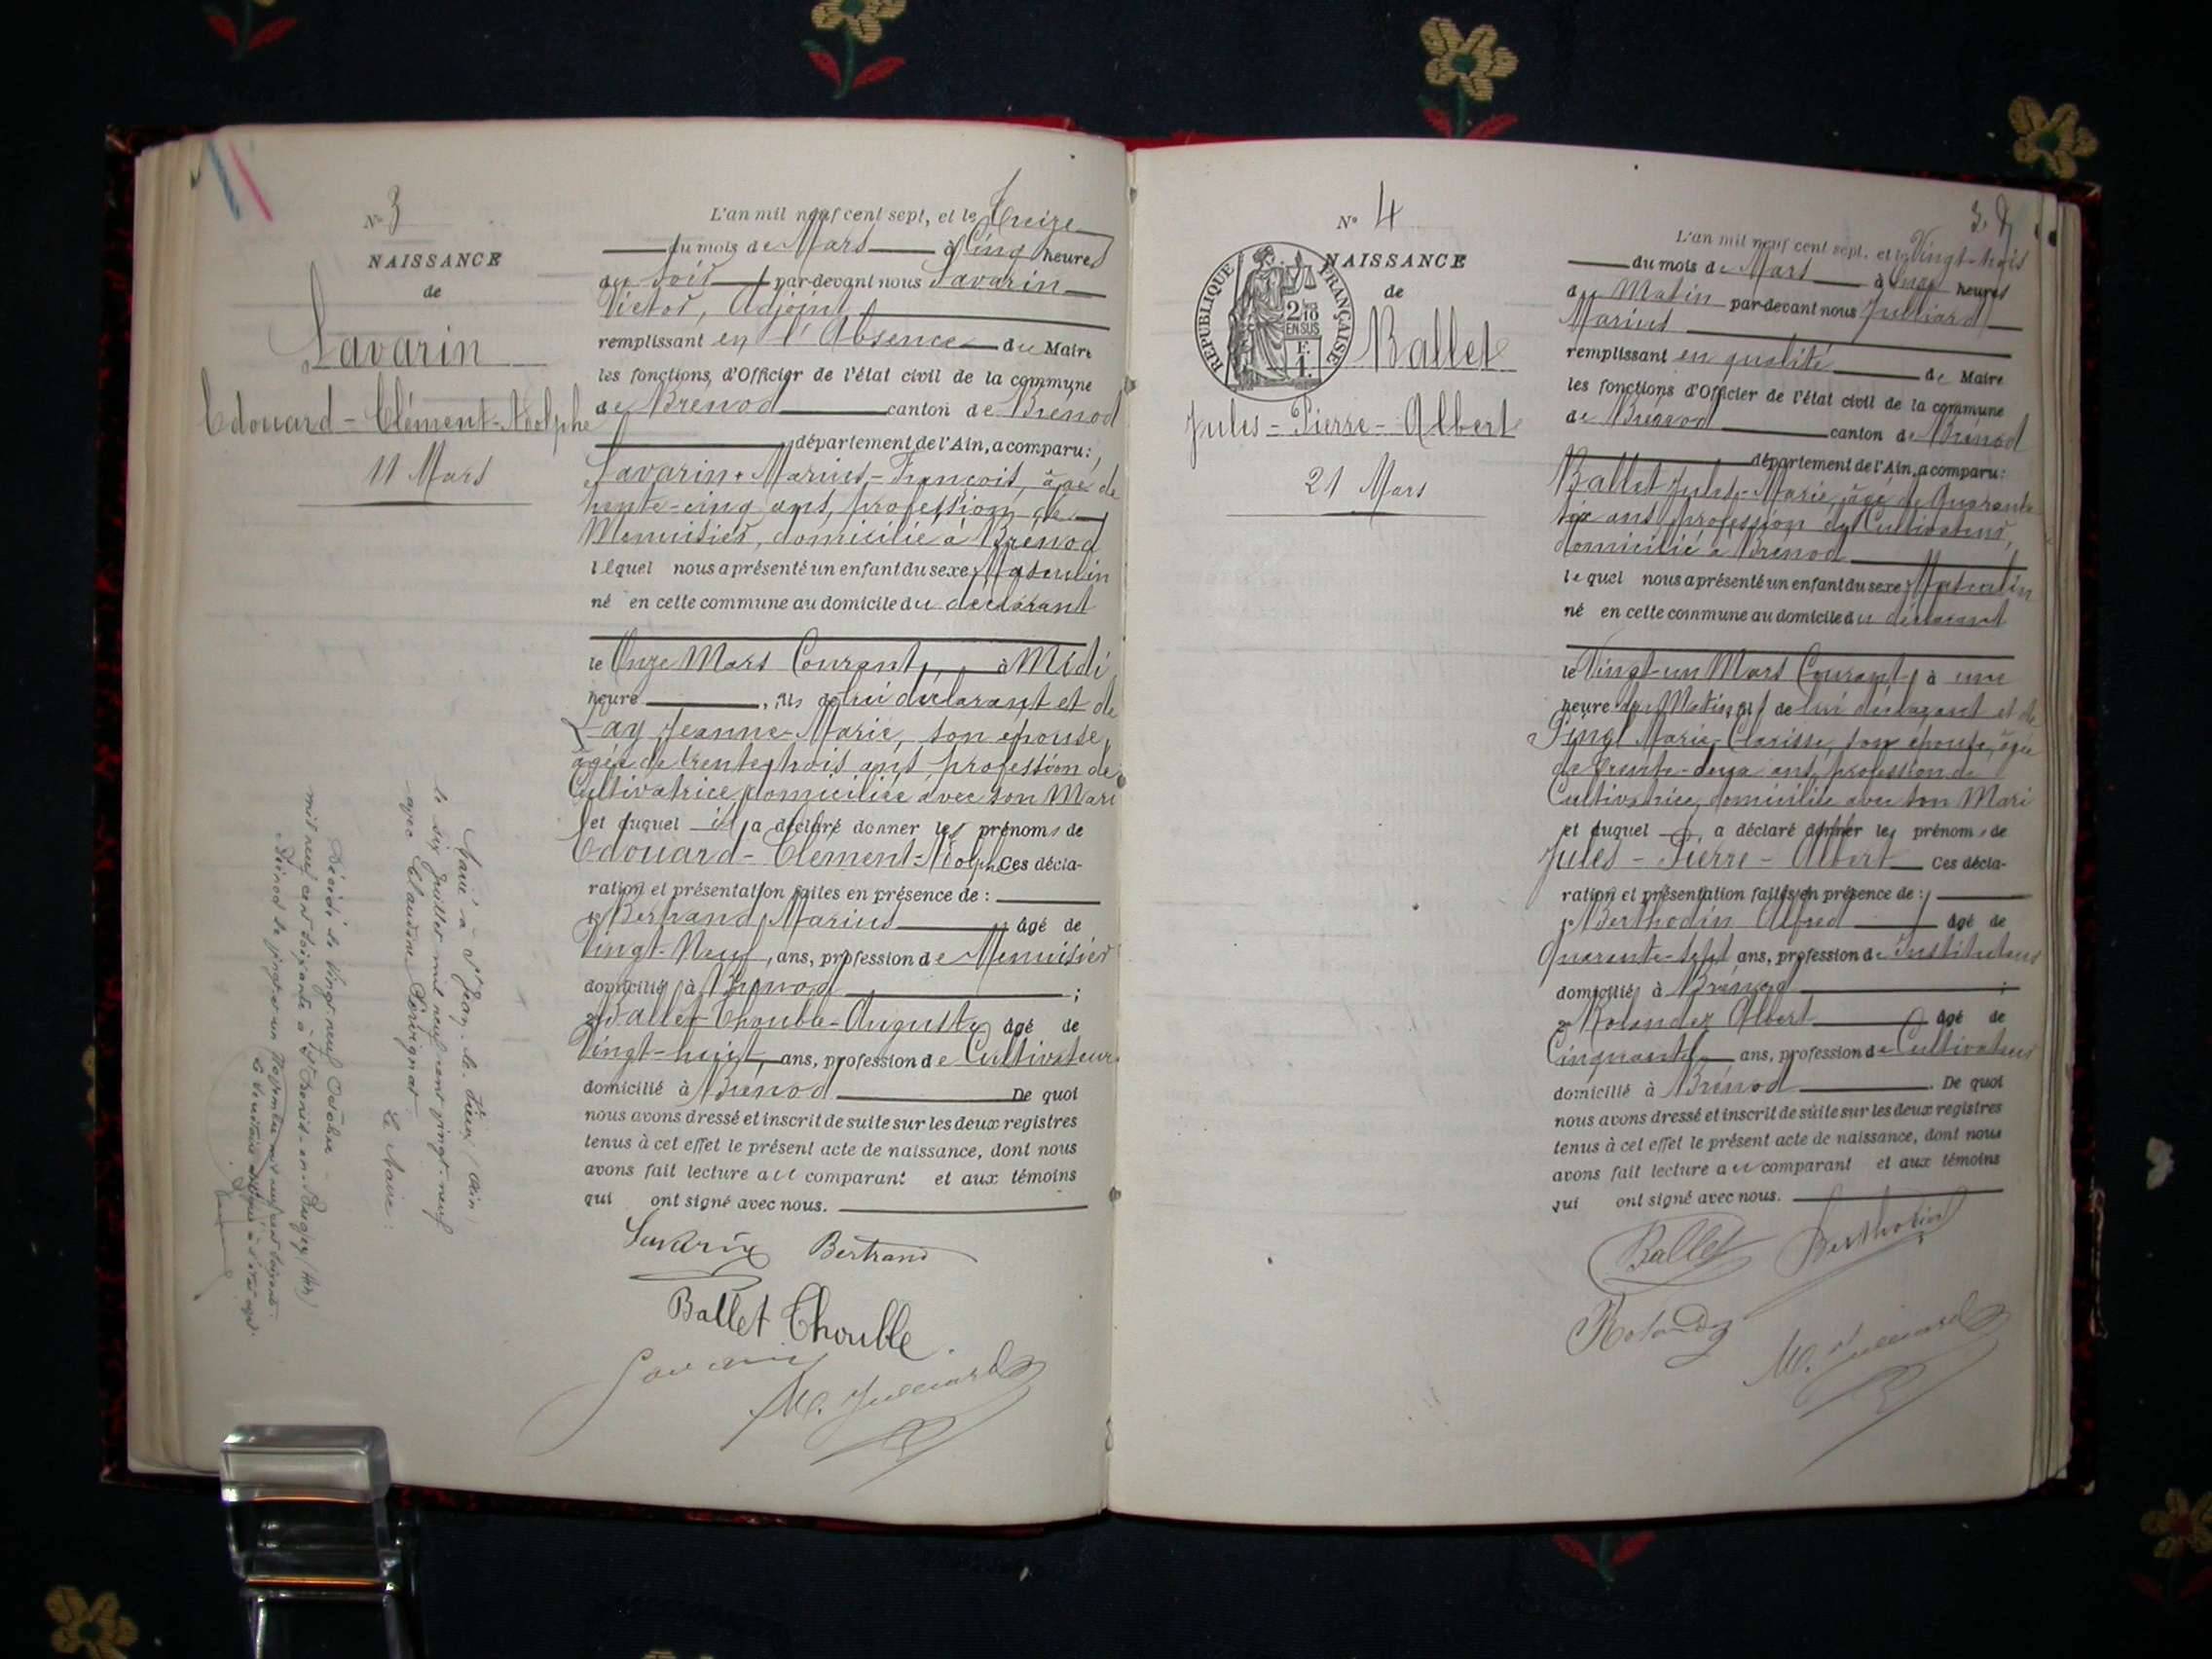 N° 3
NAISSANCE
de
Savarin
Edouard - Clément - Adolphe
11 Mars
Marié à St Jean-le-Vieux (Ain)
le six Juillet mil neuf cent vingt-neuf
avec Claudine
Le Maire :
Décédé le vingt neuf Octobre
mil neuf cent soixante à St Denis-en-Bugey (Ain)
Brénod le vingt-et-un Novembre mil neuf cent soixante
L'an mil neuf cent sept, et le Treize
du mois de Mars à Cinq heures
du soir par-devant nous Savarin
Victor, Adjoint
remplissant en l'Absence du Maire
les fonctions d'Officier de l'état civil de la commune
de Brénod canton de Brénod
département de l'Ain, a comparu :
Savarin Marius-François, âgé de
trente-cinq ans, profession de
Menuisier, domicilié à Brénod
lequel nous a présenté un enfant du sexe Masculin
né en cette commune au domicile du déclarant
le Onze Mars Courant, à Midi
heure , fils de lui déclarant et de
Lay Jeanne-Marie, son épouse,
âgée de trente-trois ans, profession de
Cultivatrice, domiciliée avec son Mari
et auquel il a déclaré donner les prénoms de
Edouard - Clément - Adolphe Ces décla-
ration et présentation faites en présence de :
1° Bertrand Marius âgé de
Vingt-Neuf, ans, profession de Menuisier
domicilié à Brénod ;
2° Ballet-Thouble-Auguste, âgé de
Vingt-huit, ans, profession de Cultivateur
domicilié à Brénod De quoi
nous avons dressé et inscrit de suite sur les deux registres
tenus à cet effet le présent acte de naissance, dont nous
avons fait lecture au comparant et aux témoins
qui ont signé avec nous.
Savarin Bertrand
Ballet Thouble
Savarin
M. Julliard
3.
N° 4
NAISSANCE
de
RÉPUBLIQUE FRANÇAISE
2/10
EN SUS
Ballet
Jules - Pierre - Albert
21 Mars
L'an mil neuf cent sept, et le Vingt-trois
du mois de Mars à Onze heures
du Matin par-devant nous Julliard
Marius
remplissant en qualité de Maire
les fonctions d'Officier de l'état civil de la commune
de Brénod canton de Brénod
département de l'Ain, a comparu :
Ballet Jules-Marie, âgé de Quarante
six ans, profession de Cultivateur,
domicilié à Brénod
lequel nous a présenté un enfant du sexe Masculin
né en cette commune au domicile du déclarant
le Vingt-un Mars Courant, à une
heure du Matin, fils de lui déclarant et de
Marie-Clarisse, son épouse, âgée
de trente-deux ans, profession de
Cultivatrice, domiciliée avec son Mari
et auquel il a déclaré donner les prénoms de
Jules - Pierre - Albert Ces décla-
ration et présentation faites en présence de :
1° Berthodin Alfred âgé de
Quarante-sept ans, profession de Instituteur
domicilié à Brénod ;
2° Rolandez Albert âgé de
Cinquante ans, profession de Cultivateur
domicilié à Brénod . De quoi
nous avons dressé et inscrit de suite sur les deux registres
tenus à cet effet le présent acte de naissance, dont nous
avons fait lecture au comparant et aux témoins
qui ont signé avec nous.
Ballet Berthodin
Rolandez
M. Julliard